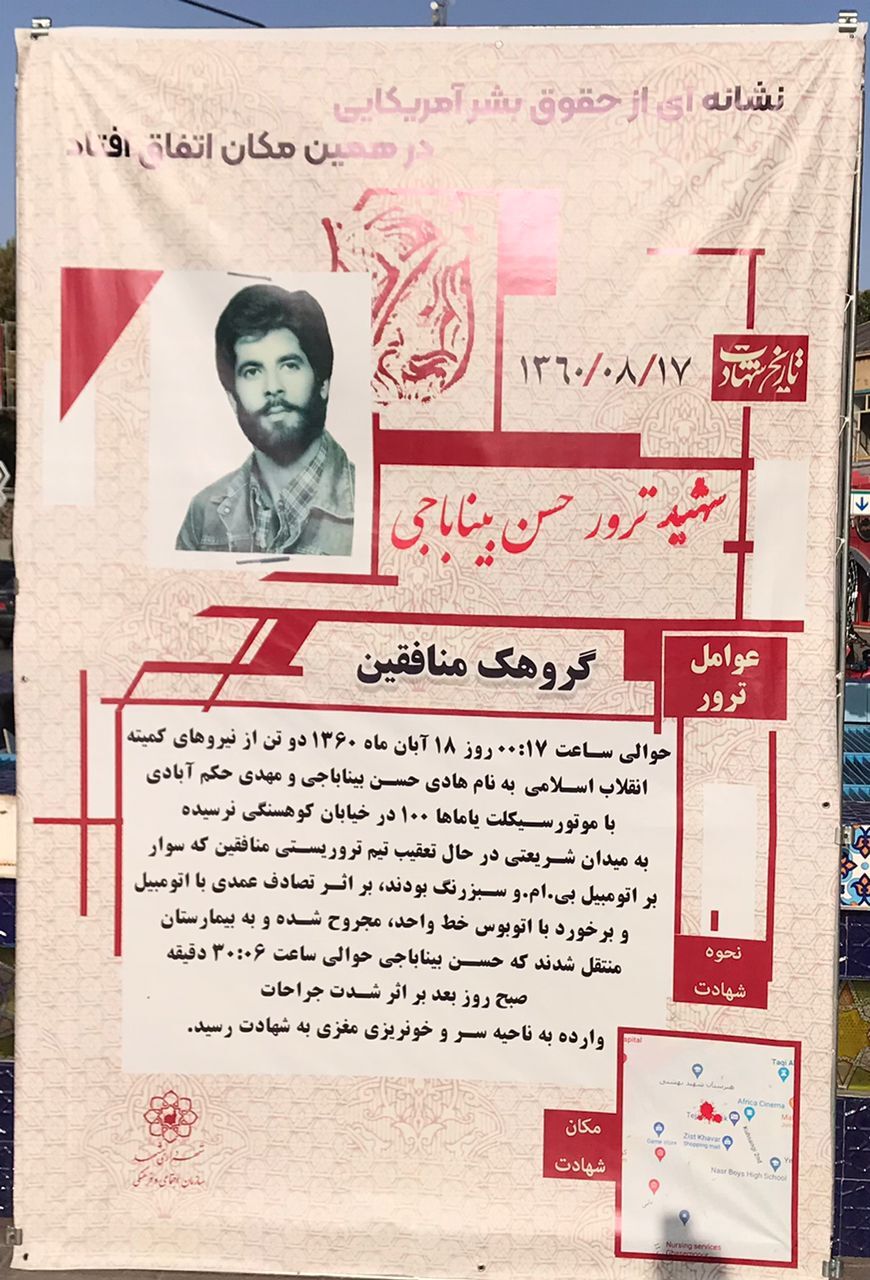 نشانه ای از حقوق بشر آمریکایی
در همین مکان اتفاق افتاد
تاریخ شهادت
۱۳۶۰/۰۸/۱۷
شهید ترور حسن بیناباجی
عوامل
ترور
گروهک منافقین
حوالی ساعت ۰۰:۱۷ روز ۱۸ آبان ماه ۱۳۶۰ دو تن از نیروهای کمیته
انقلاب اسلامی به نام هادی حسن بیناباجی و مهدی حکم آبادی
با موتورسیکلت یاماها ۱۰۰ در خیابان کوهسنگی نرسیده
به میدان شریعتی در حال تعقیب تیم تروریستی منافقین که سوار
بر اتومبیل بی.ام.و سبزرنگ بودند، بر اثر تصادف عمدی با اتومبیل
و برخورد با اتوبوس خط واحد، مجروح شده و به بیمارستان
منتقل شدند که حسن بیناباجی حوالی ساعت ۳۰:۰۶ دقیقه
صبح روز بعد بر اثر شدت جراحات
وارده به ناحیه سر و خونریزی مغزی به شهادت رسید.
نحوه
شهادت
مکان
شهادت
spital
Taqi A
هنرستان شهید بهشتی
Africa Cinema
Teje
k
Kuhsangi 2nd
Game store
Zist Khavar
Shopping mall
Nasr Boys High School
Nursing services
شهرداری مشهد
سازمان اجتماعی و فرهنگی